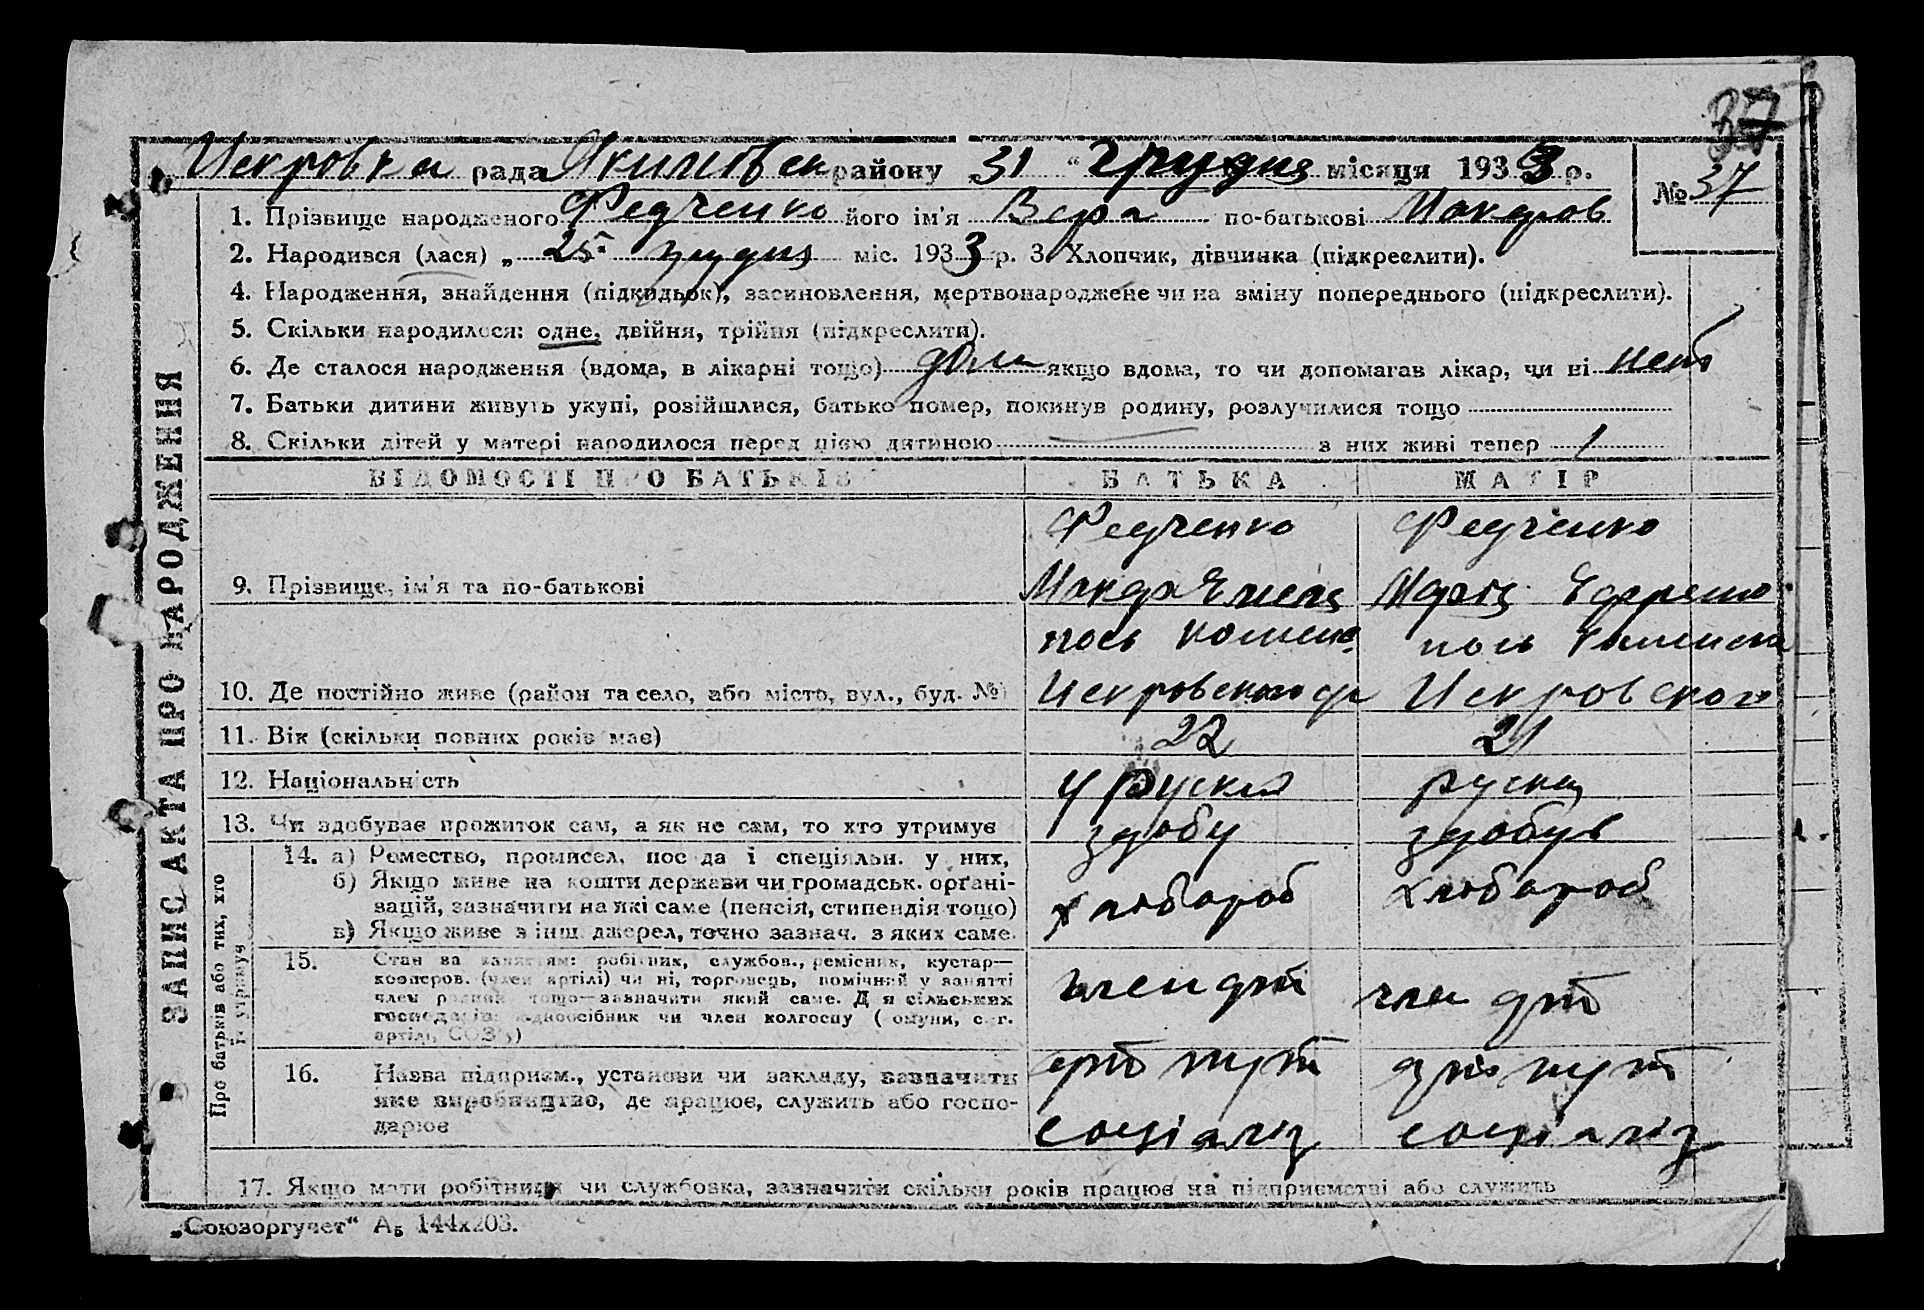 37
Искровка рада Якимовск району 31 " грудня місяця 1933 р.
№ 37
1. Прізвище народженого Федченко його ім'я Вера по-батькові Макаров
2. Народився (лася) „ 25 грудня міс. 1933 р. 3. Хлопчик, дівчинка (підкреслити).
4. Народження, знайдення (підкидьок), засиновлення, мертвонароджене чи на зміну попереднього (підкреслити).
5. Скільки народилося: одне, двійня, трійня (підкреслити).
6. Де сталося народження (вдома, в лікарні тощо) дом якщо вдома, то чи допомагав лікар, чи ні нет
7. Батьки дитини живуть укупі, розійшлися, батько помер, покинув родину, розлучилися тощо
8. Скільки дітей у матері народилося перед цією дитиною з них живі тепер 1
ВІДОМОСТІ ПРО БАТЬКІВ БАТЬКА МАТІР
Федченко Федченко
9. Прізвище, ім'я та по-батькові Макар Мария
пось пось
10. Де постійно живе (район та село, або місто, вул., буд. №) Искровского Искровского
11. Вік (скільки повних років має) 22 21
12. Національність руский руска
13. Чи здобуває прожиток сам, а як не сам, то хто утримує здобу здобув
14. а) Ремество, промисел, посада і спеціяльн. у них,
б) Якщо живе на кошти держави чи громадськ. органі-
зацій, зазначити на які саме (пенсія, стипендія тощо) хлібороб хлібороб
в) Якщо живе з інш. джерел, точно зазнач. з яких саме
15. Стан за заняттям: робітник, службов., ремісник, кустар—
кооперов. (член артілі) чи ні, торговець, помічний у занятті
член родини тощо—зазначити який саме. Для сільських член член
господарів: одноосібник чи член колгоспу (комуни, с.-г.
артілі, СОЗ'у)
16. Назва підприєм., установи чи закладу, зазначити
яке виробництво, де працює, служить або госпо-
дарює соціаліз соціаліз
17. Якщо мати робітниця чи службовка, зазначити скільки років працює на підприємстві або служить
ЗАПИС АКТА ПРО НАРОДЖЕННЯ
Про батьків або тих, хто
їх утримує
„Союзоргучет“ А₅ 144х203.